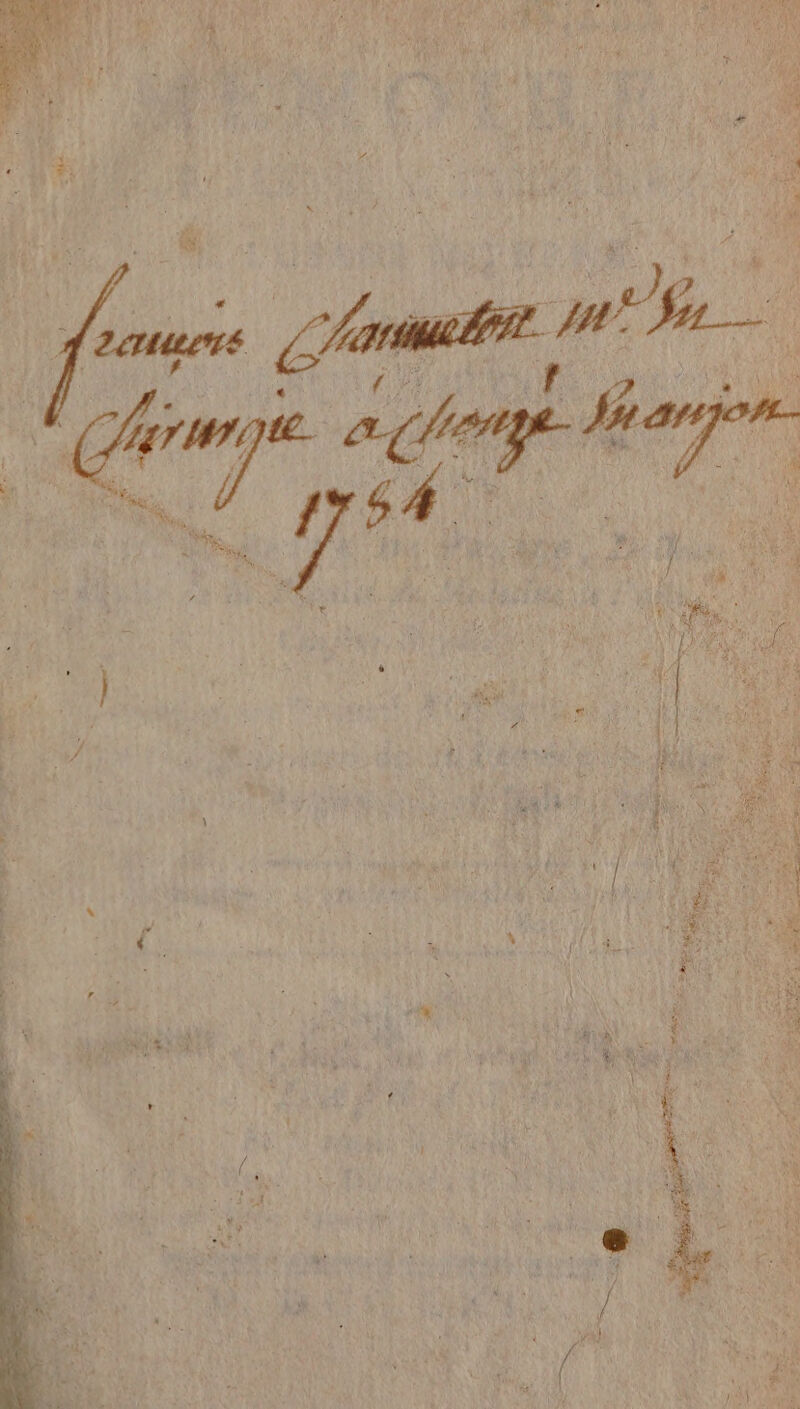 françois Chanueton m.e En
Chirurgie a Chenzé En anjou
1784